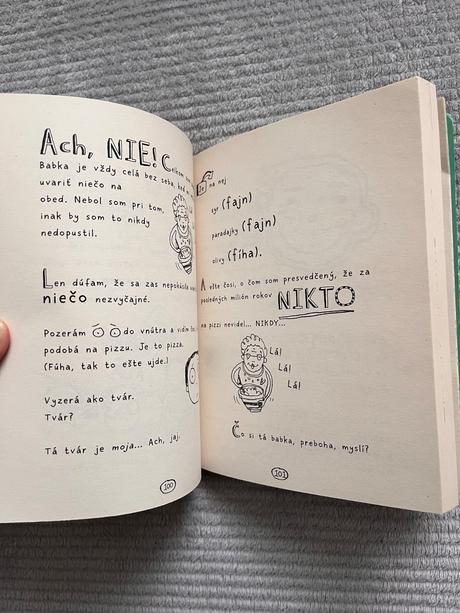 Ach, NIE! Celkom
Babka je vždy celá bez seba, keď
uvariť niečo na
obed. Nebol som pri tom,
inak by som to nikdy
nedopustil.
Len dúfam, že sa zas nepokúsila
niečo nezvyčajné.
Pozerám do vnútra a vidím
podobá na pizzu. Je to pizza.
(Fúha, tak to ešte ujde.)
Vyzerá ako tvár.
Tvár?
Tá tvár je moja... Ach, jaj.
100
Je na nej
syr (fajn)
paradajky (fajn)
olivy (fíha).
A ešte čosi, o čom som presvedčený, že za
posledných milión rokov NIKTO
na pizzi nevidel... NIKDY...
Lá!
Lá!
Lá!
Čo si tá babka, preboha, myslí?
101